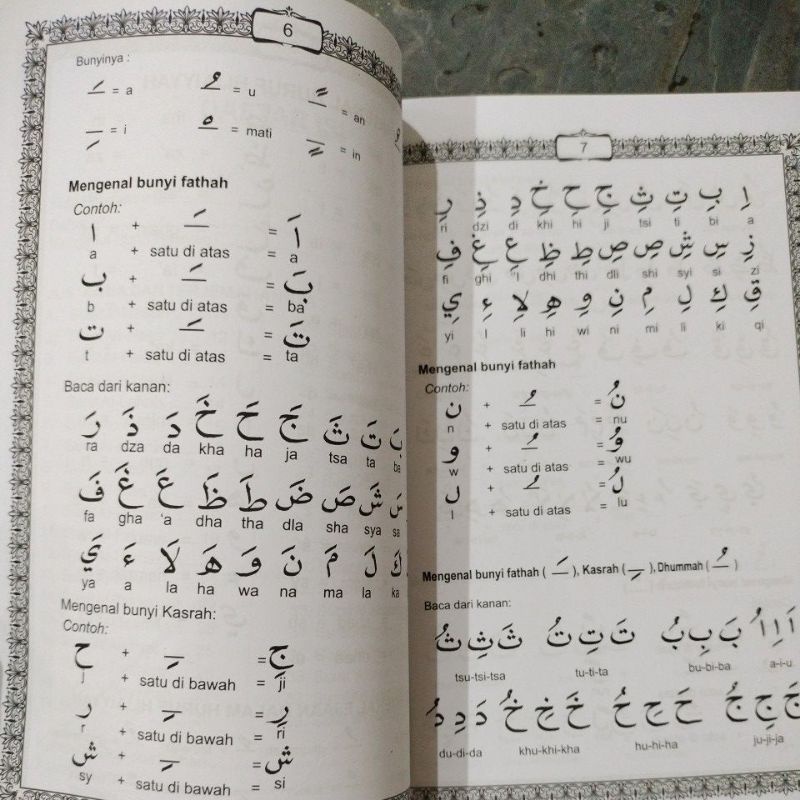 6
Bunyinya :
ـَ = a ـُ = u ـً = an
ـِ = i ـْ = mati ـٍ = in
Mengenal bunyi fathah
Contoh:
ا + ـَ = اَ
a + satu di atas = a
ب + ـَ = بَ
b + satu di atas = ba
ت + ـَ = تَ
t + satu di atas = ta
Baca dari kanan:
بَ تَ ثَ جَ حَ خَ دَ ذَ رَ
ra dza da kha ha ja tsa ta ba
سَ شَ صَ ضَ طَ ظَ عَ غَ فَ
fa gha 'a dha tha dla sha sya sa
كَ لَ مَ نَ وَ هَ لَا ءَ يَ
ya a la ha wa na ma la ka
Mengenal bunyi Kasrah:
Contoh:
ح + ـِ = جِ
j + satu di bawah = ji
ر + ـِ = رِ
r + satu di bawah = ri
ش + ـِ = شِ
sy + satu di bawah = si
7
اِ بِ تِ ثِ جِ حِ خِ دِ ذِ رِ
ri dzi di khi hi ji tsi ti bi a
زِ سِ شِ صِ صِ طِ ظِ عِ غِ فِ
fi ghi 'I dhi thi dli shi syi si zi
قِ كِ لِ مِ نِ وِ هِ لاِ ءِ يِ
yi I li hi wi ni mi li ki qi
Mengenal bunyi fathah
Contoh:
ن + ـُ = نُ
n + satu di atas = nu
و + ـُ = وُ
w + satu di atas = wu
ل + ـُ = لُ
l + satu di atas = lu
Mengenal bunyi fathah ( ـَ ), Kasrah ( ـِ ), Dhummah ( ـُ )
Baca dari kanan:
اَ اِ اُ بَ بِ بُ تَ تِ تُ ثَ ثِ ثُ
tsu-tsi-tsa tu-ti-ta bu-bi-ba a-i-u
جَ جِ جُ حَ حِ حُ خَ خِ خُ دَ دِ دُ
du-di-da khu-khi-kha hu-hi-ha ju-ji-ja